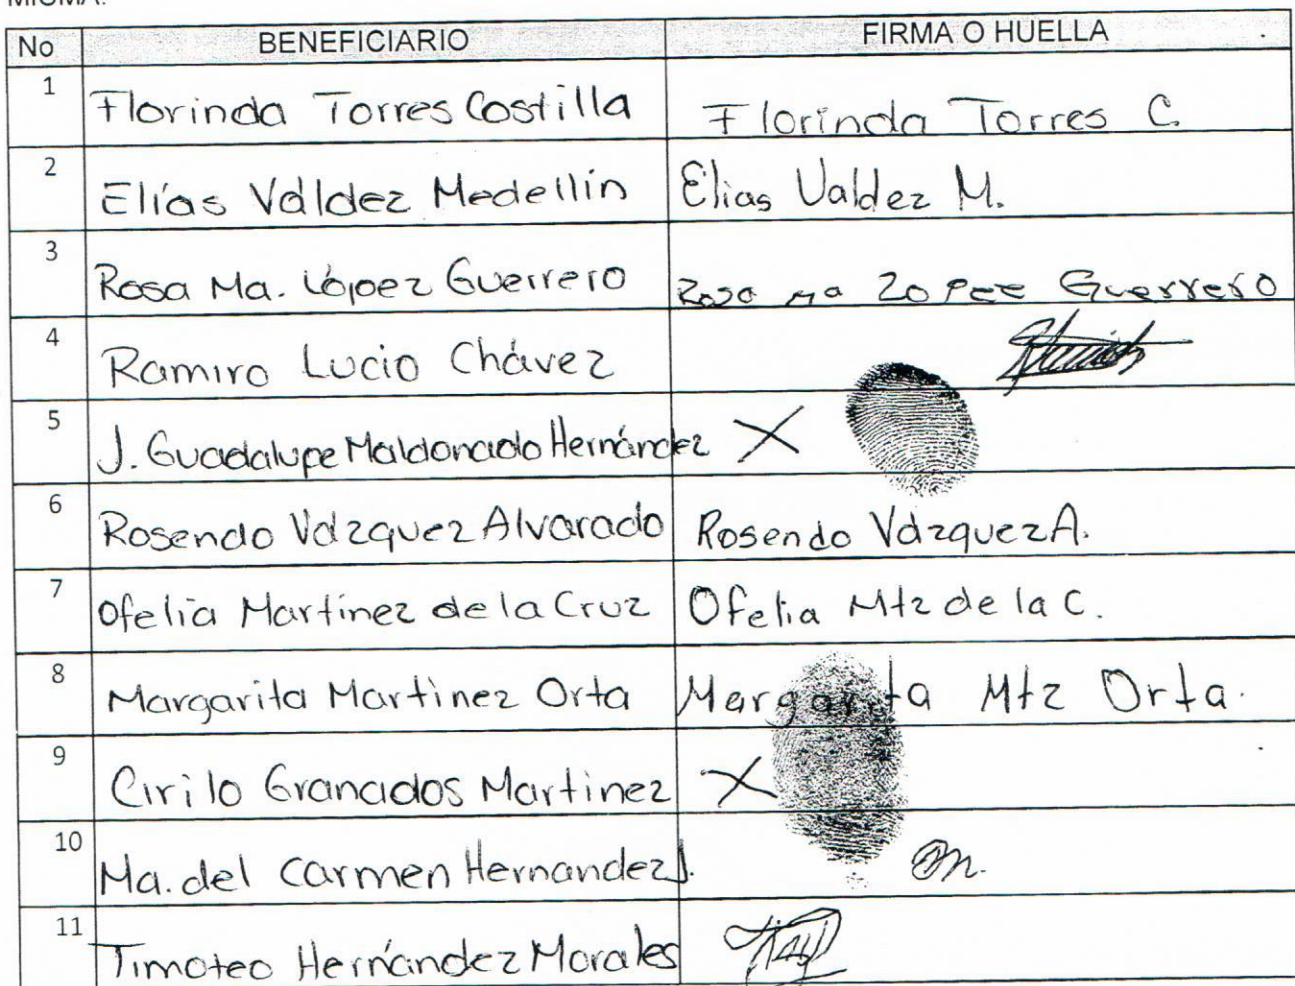 No BENEFICIARIO FIRMA O HUELLA
1 Florinda Torres Costilla Florinda Torres C.
2 Elías Váldez Medellín Elias Valdez M.
3 Rosa Ma. López Guerrero Rosa ma Lopez Guerrero
4 Ramiro Lucio Chávez
5 J. Guadalupe Maldonado Hernández X
6 Rosendo Vázquez Alvarado Rosendo Vázquez A.
7 Ofelia Martínez de la Cruz Ofelia Mtz de la C.
8 Margarita Martínez Orta Margarita Mtz Orta.
9 Cirilo Granados Martinez X
10 Ma. del Carmen Hernandez J.
11 Timoteo Hernández Morales